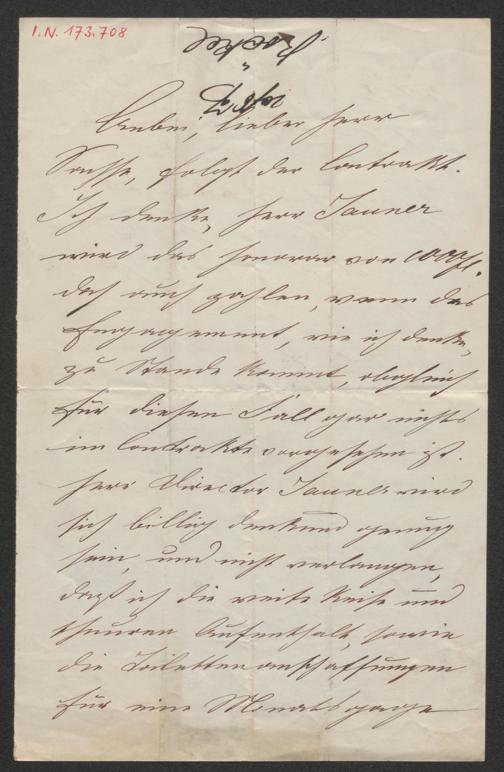 I.N. 173.708
Anbei, lieber Herr
folgt der Contrakt.
Ich denke, Herr Jauner
wird das Honorar von 1000 fl.
doch auch zahlen, wenn das
Engagement, wie ich denke,
zu Stande kommt, obgleich
für diesen Fall gar nichts
im Contrakte vorgesehen ist.
Herr Director Jauner wird
sich billig denkend genug
sein, und nicht verlangen,
daß ich die weite Reise und
theuren Aufenthalt, sowie
die Toilettenanschaffungen
für eine Monatsgage